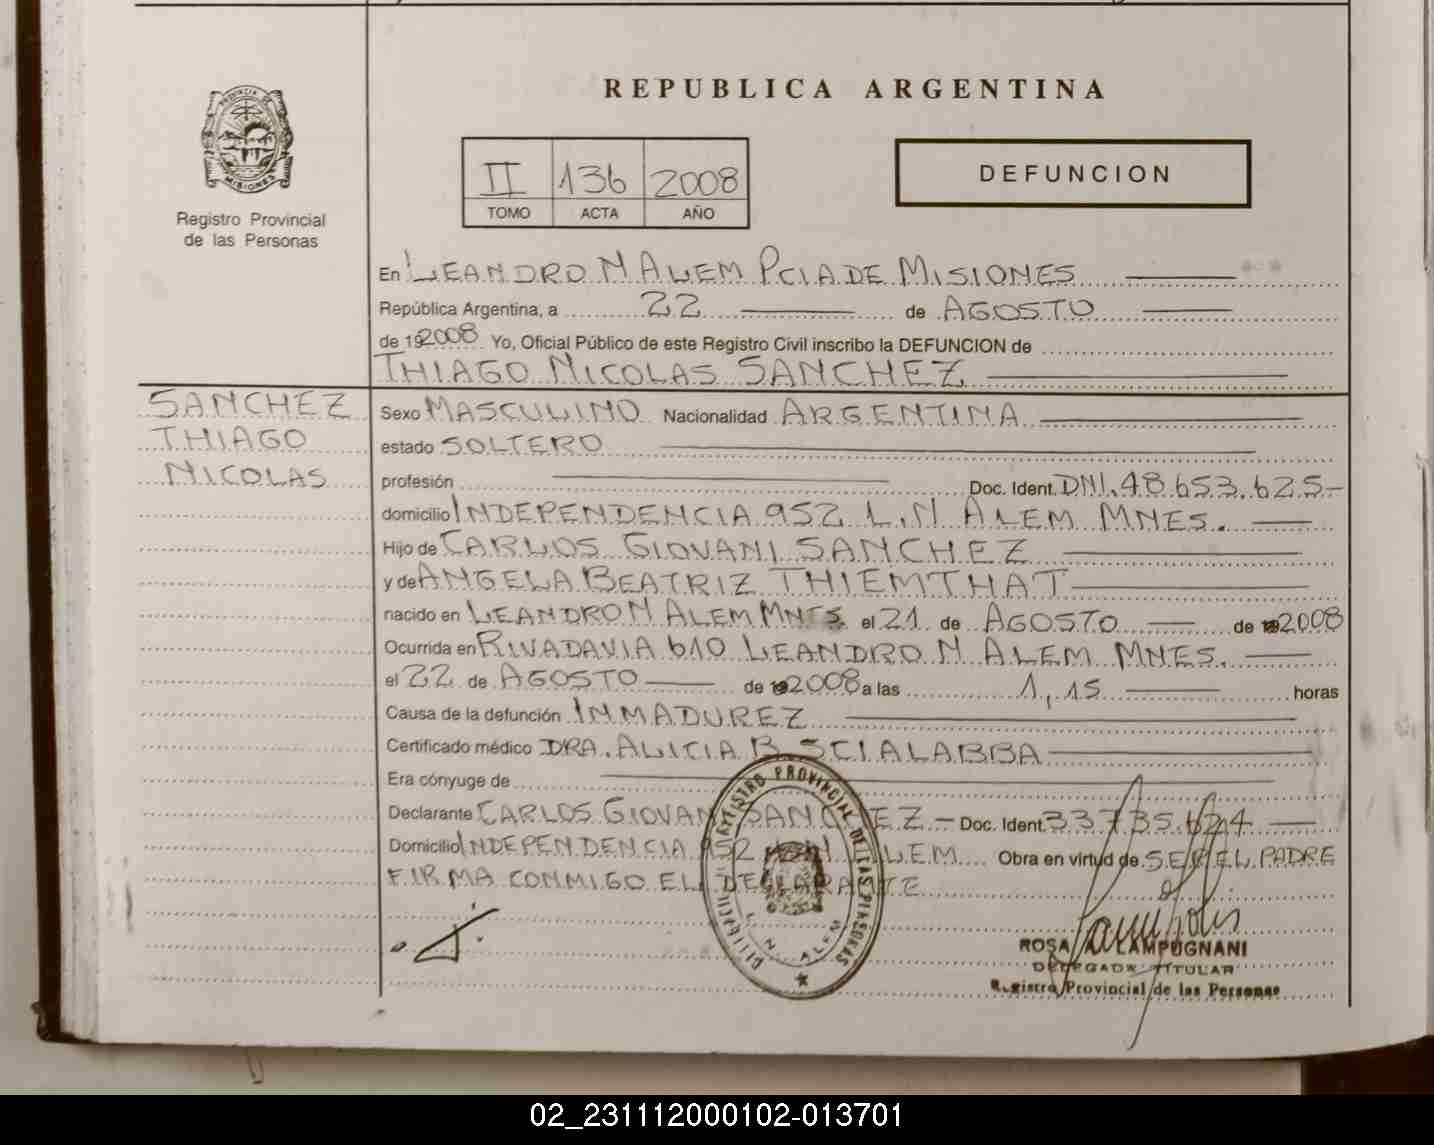 REPUBLICA ARGENTINA
PROVINCIA DE
MISIONES
Registro Provincial
de las Personas
II 136 2008
TOMO ACTA AÑO
DEFUNCION
En LEANDRO N ALEM PCIA DE MISIONES
República Argentina, a 22 de AGOSTO
de 192008 Yo, Oficial Público de este Registro Civil inscribo la DEFUNCION de
THIAGO NICOLAS SANCHEZ
SANCHEZ
THIAGO
NICOLAS
Sexo MASCULINO Nacionalidad ARGENTINA
estado SOLTERO
profesión Doc. Ident. DNI. 48.653.625-
domicilio INDEPENDENCIA 952 L.N ALEM MNES.
Hijo de CARLOS GIOVANI SANCHEZ
y de ANGELA BEATRIZ THIEMTHAT
nacido en LEANDRO N ALEM MNES. el 21 de AGOSTO de 2008
Ocurrida en RIVADAVIA 610 LEANDRO N ALEM MNES.
el 22 de AGOSTO de 2008 a las 1,15 horas
Causa de la defunción INMADUREZ
Certificado médico DRA. ALICIA B SCIALABBA
Era cónyuge de
Declarante CARLOS GIOVANI SANCHEZ - Doc. Ident. 33.735.624
Domicilio INDEPENDENCIA 952 L.N ALEM Obra en virtud de SER EL PADRE
FIRMA CONMIGO EL DECLARANTE
REGISTRO PROVINCIAL DE LAS PERSONAS
L. N. ALEM
ROSA LAMPUGNANI
DELEGADA TITULAR
Registro Provincial de las Personas
02_231112000102-013701